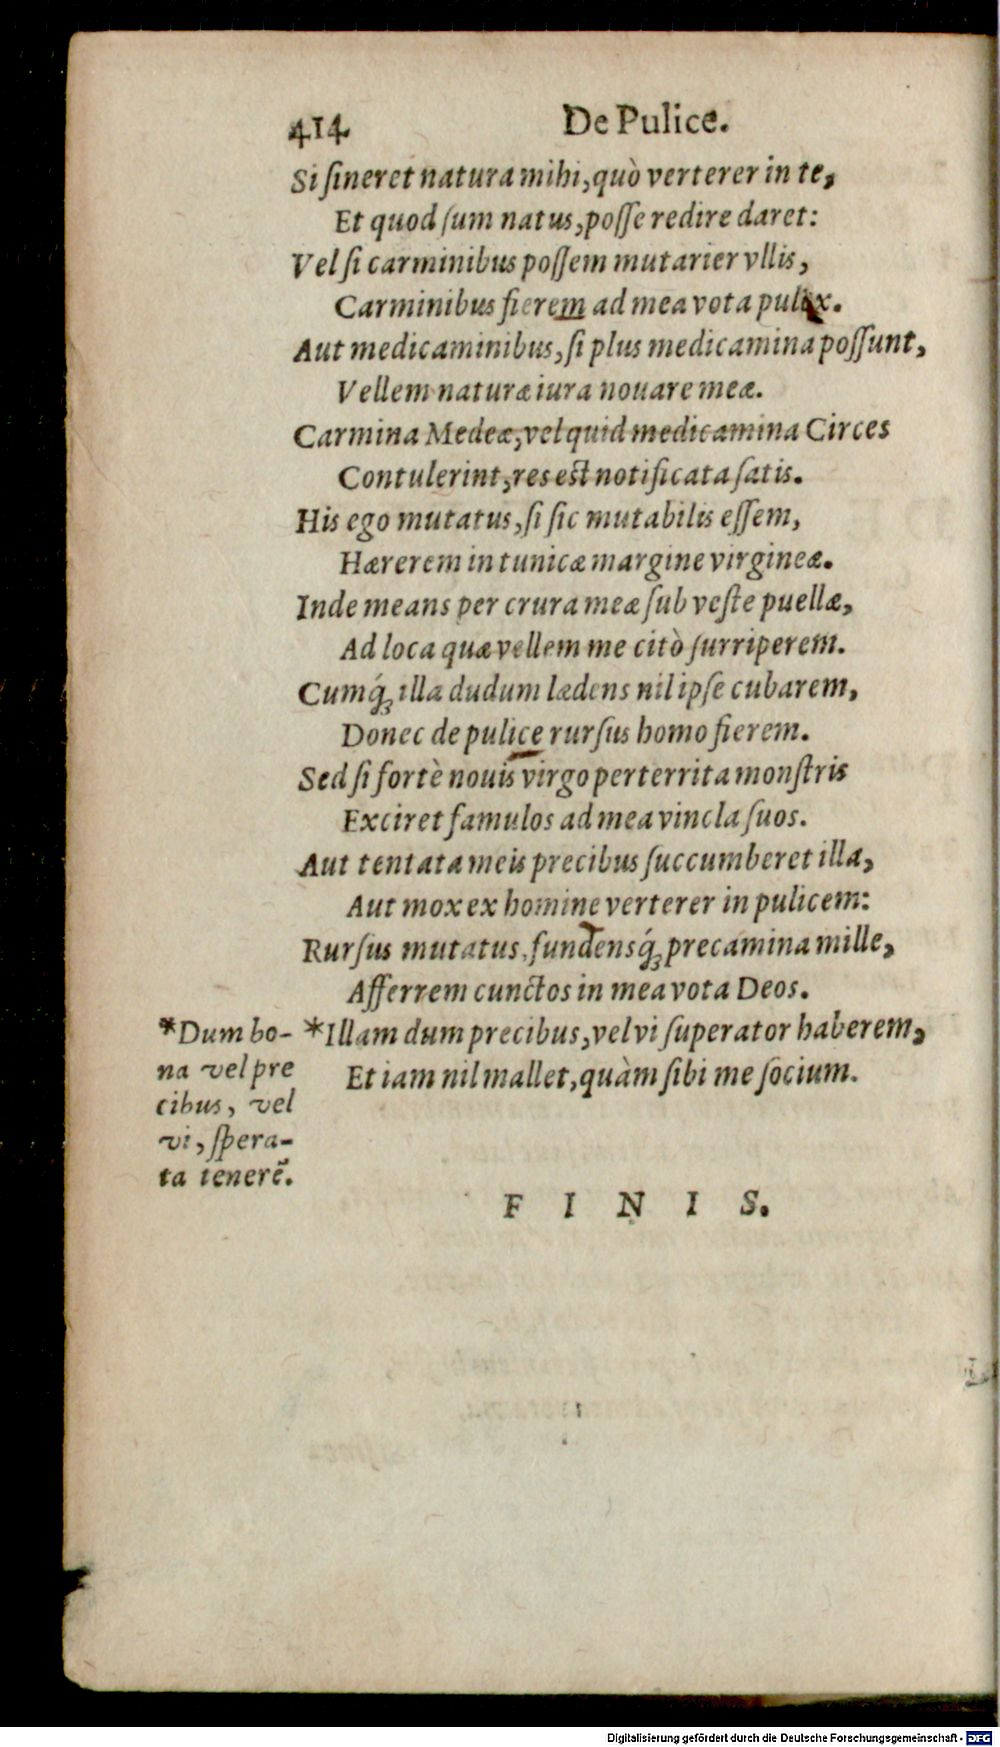 414 De Pulice.
Si ſineret natura mihi, quò verterer in te,
Et quod ſum natus, poſſe redire daret:
Vel ſi carminibus poſſem mutarier vllis,
Carminibus fierem ad mea vota pulex.
Aut medicaminibus, ſi plus medicamina poſſunt,
Vellem naturæ iura nouare meæ.
Carmina Medeæ, vel quid medicamina Circes
Contulerint, res eſt notificata ſatis.
His ego mutatus, ſi ſic mutabilis eſſem,
Hærerem in tunicæ margine virgineæ.
Inde means per crura meæ ſub veſte puellæ,
Ad loca quæ vellem me citò ſurriperem.
Cumq́ꝫ illa dudum lædens nil ipſe cubarem,
Donec de pulice rurſus homo fierem.
Sed ſi fortè nouis virgo perterrita monſtris
Exciret famulos ad mea vincla ſuos.
Aut tentata meis precibus ſuccumberet illa,
Aut mox ex homine verterer in pulicem:
Rurſus mutatus, fundensq́ꝫ precamina mille,
Afferrem cunctos in mea vota Deos.
*Illam dum precibus, vel vi ſuperator haberem,
Et iam nil mallet, quàm ſibi me ſocium.
*Dum bo-
na vel pre
cibus, vel
vi, ſpera-
ta tenerē.
F I N I S.
Digitalisierung gefördert durch die Deutsche Forschungsgemeinschaft - DFG